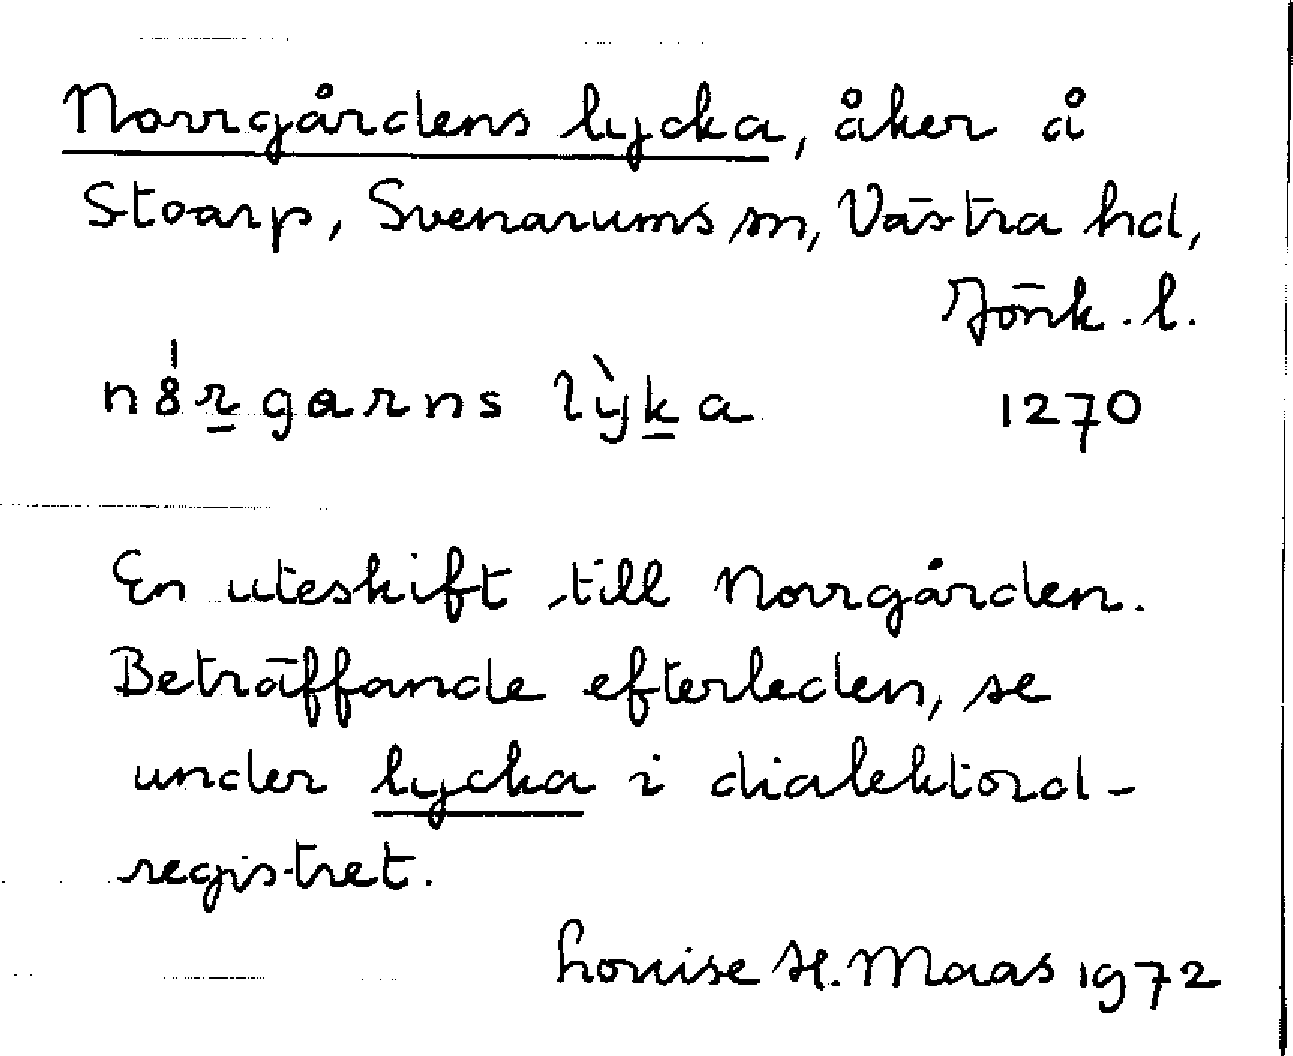 Norrgårdens lycka, åker å
Stoarp, Svenarums sn, Västra hd,
Jönk. l.
n8́r̲garns lỳk̲a 1270
En uteskift till Norrgården.
Beträffande efterleden, se
under lycka i dialektord-
registret.
Louise H. Maas 1972